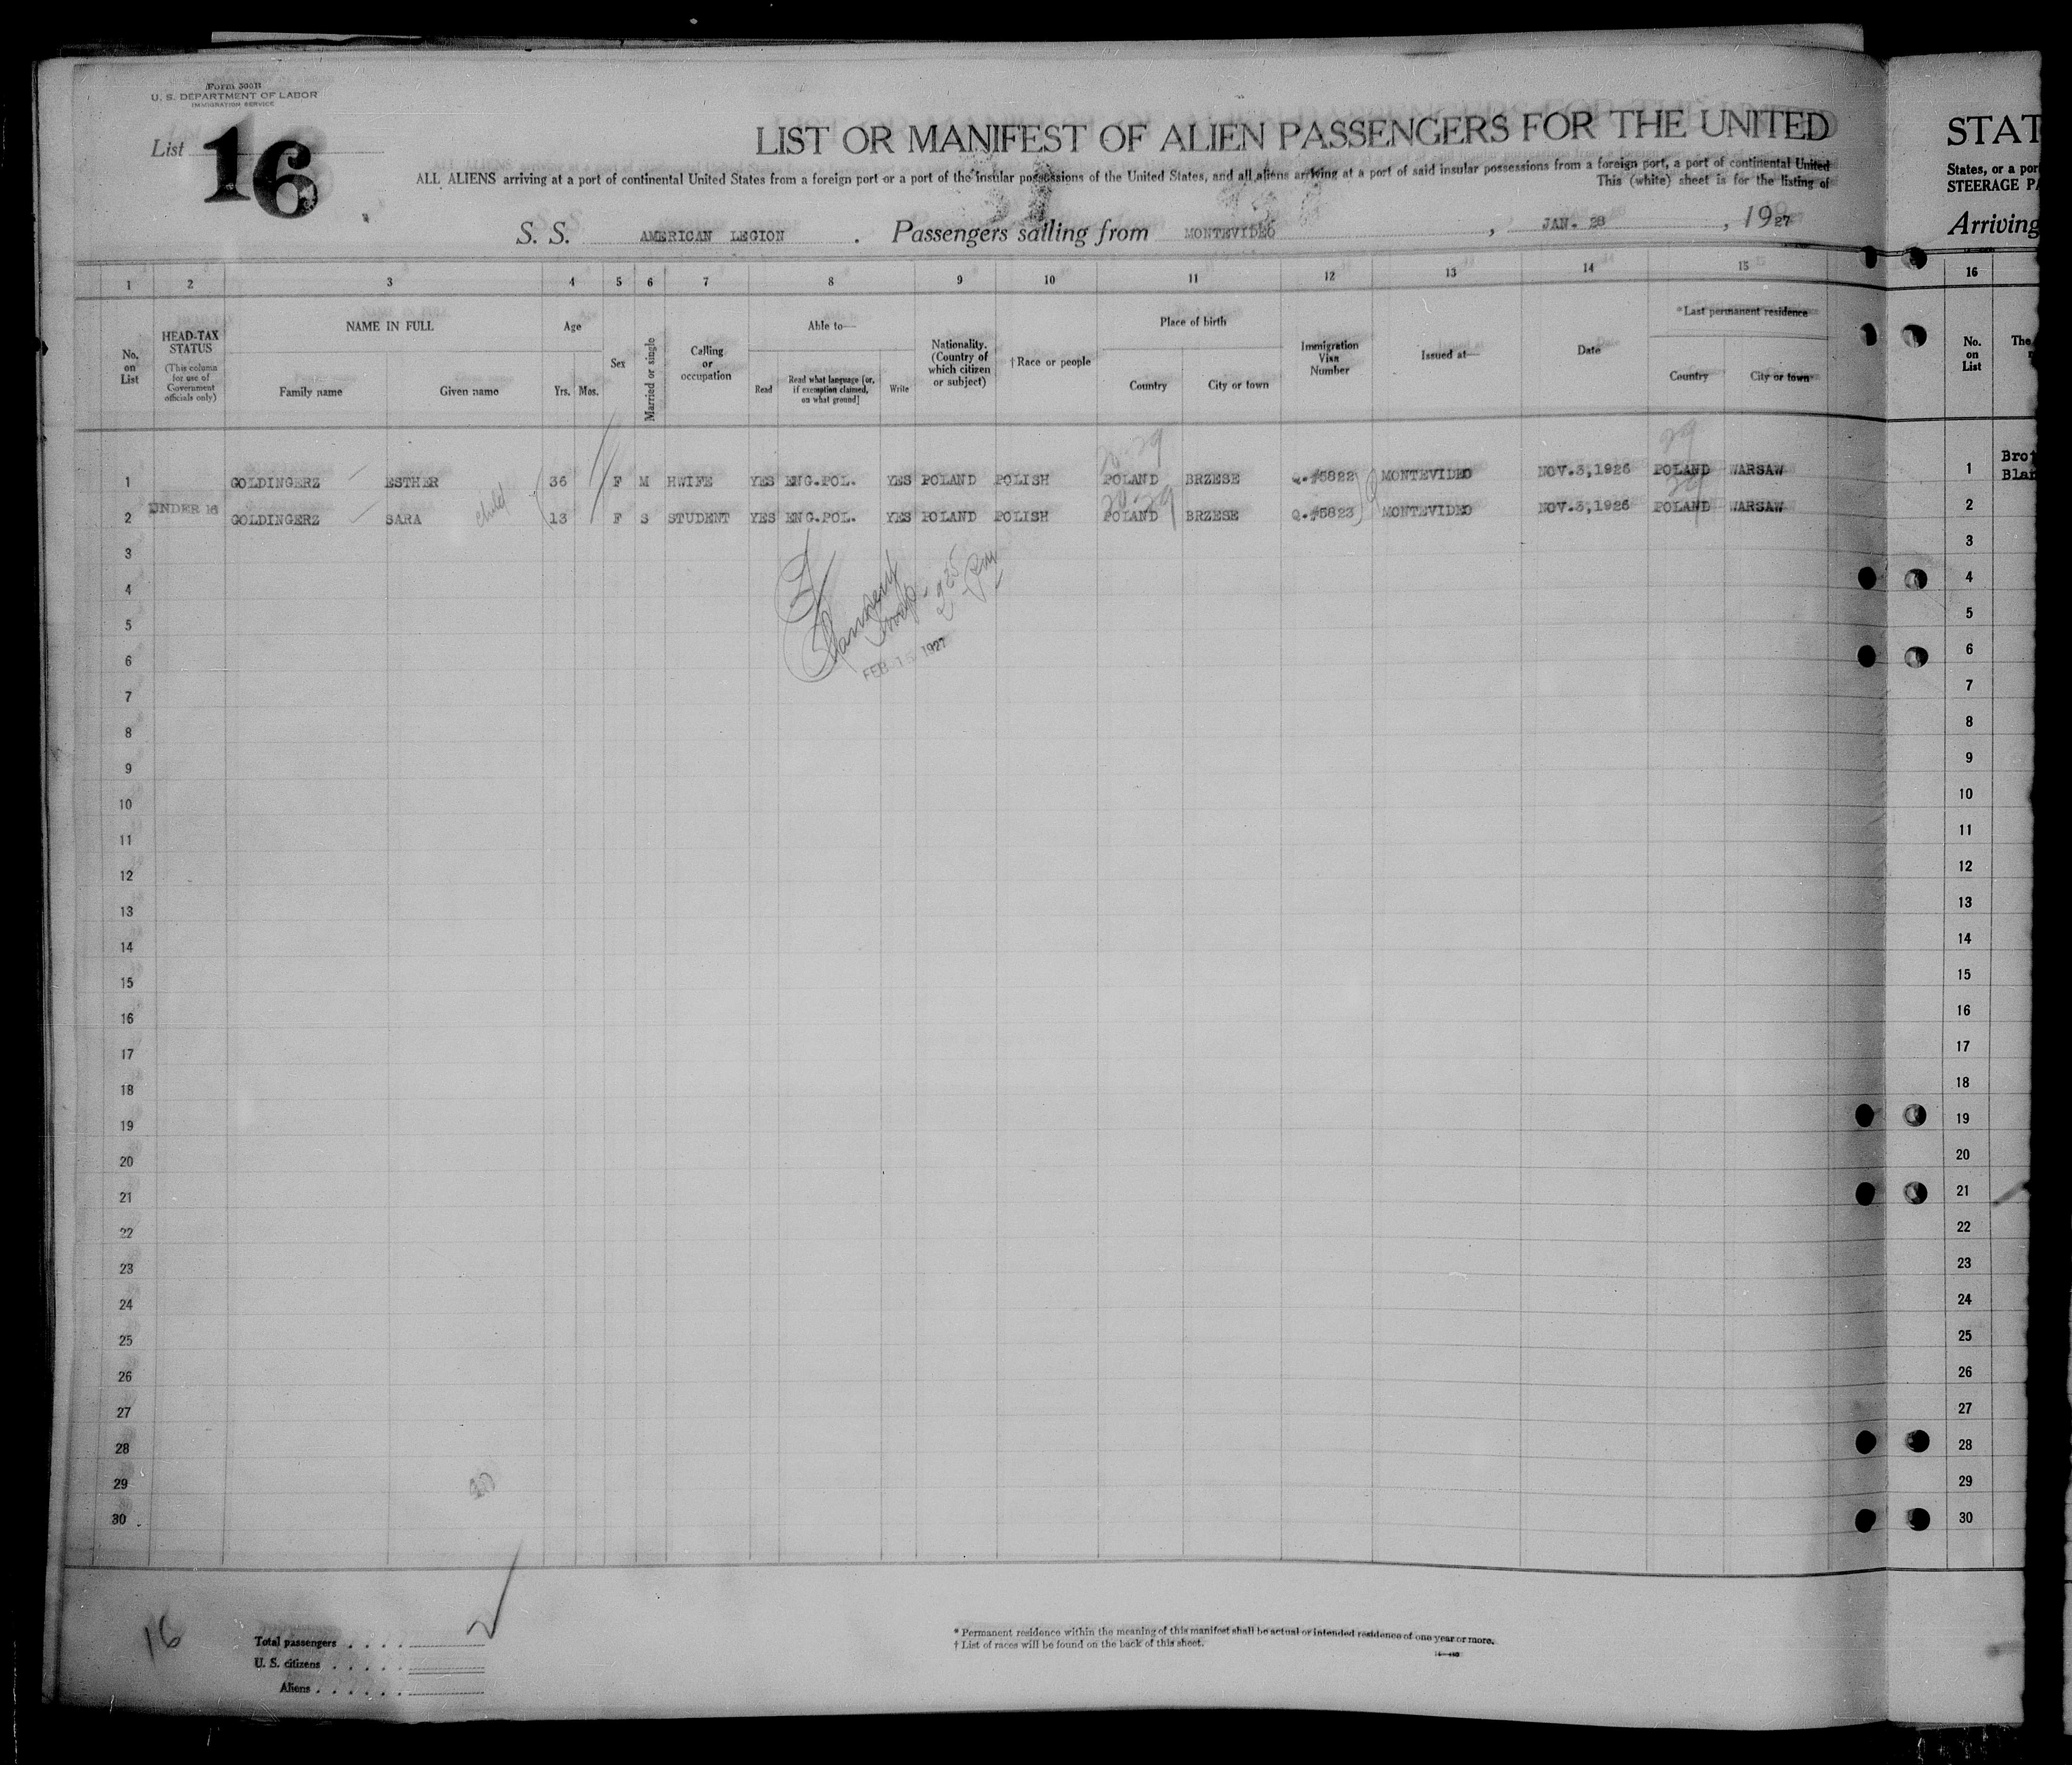 Form 500B
U. S. DEPARTMENT OF LABOR
IMMIGRATION SERVICE
List 16
LIST OR MANIFEST OF ALIEN PASSENGERS FOR THE UNITED
ALL ALIENS arriving at a port of continental United States from a foreign port or a port of the insular possessions of the United States, and all aliens arriving at a port of said insular possessions from a foreign port, a port of continental United
This (white) sheet is for the listing of
S. S. AMERICAN LEGION . Passengers sailing from MONTEVIDEO , JAN. 28 , 1927
STAT
States, or a por
STEERAGE PA
Arriving
1 2 3 4 5 6 7 8 9 10 11 12 13 14 15 16
No. on List
HEAD-TAX STATUS (This column for use of Government officials only)
NAME IN FULL
Family name Given name
Age
Yrs. Mos.
Sex
Married or single
Calling or occupation
Able to—
Read Read what language [or, if exemption claimed, on what ground] Write
Nationality. (Country of which citizen or subject)
†Race or people
Place of birth
Country City or town
Immigration Visa Number
Issued at—
Date
*Last permanent residence
Country City or town
No. on List
The
20-29 29
1 GOLDINGERZ ESTHER 36 F M HWIFE YES ENG.POL. YES POLAND POLISH POLAND BRZESE Q.#5822 MONTEVIDEO NOV.3,1926 POLAND WARSAW 1 Brot
Blan
20-29 29
2 UNDER 16 GOLDINGERZ SARA child 13 F S STUDENT YES ENG.POL. YES POLAND POLISH POLAND BRZESE Q.#5823 MONTEVIDEO NOV.3,1926 POLAND WARSAW 2
3 3
4 4
5 5
6 6
FEB 15 1927
7 7
8 8
9 9
10 10
11 11
12 12
13 13
14 14
15 15
16 16
17 17
18 18
19 19
20 20
21 21
22 22
23 23
24 24
25 25
26 26
27 27
28 28
29 29
30 30
16
Total passengers . . . . 2
U. S. citizens . . . . .
Aliens . . . . . .
* Permanent residence within the meaning of this manifest shall be actual or intended residence of one year or more.
† List of races will be found on the back of this sheet.